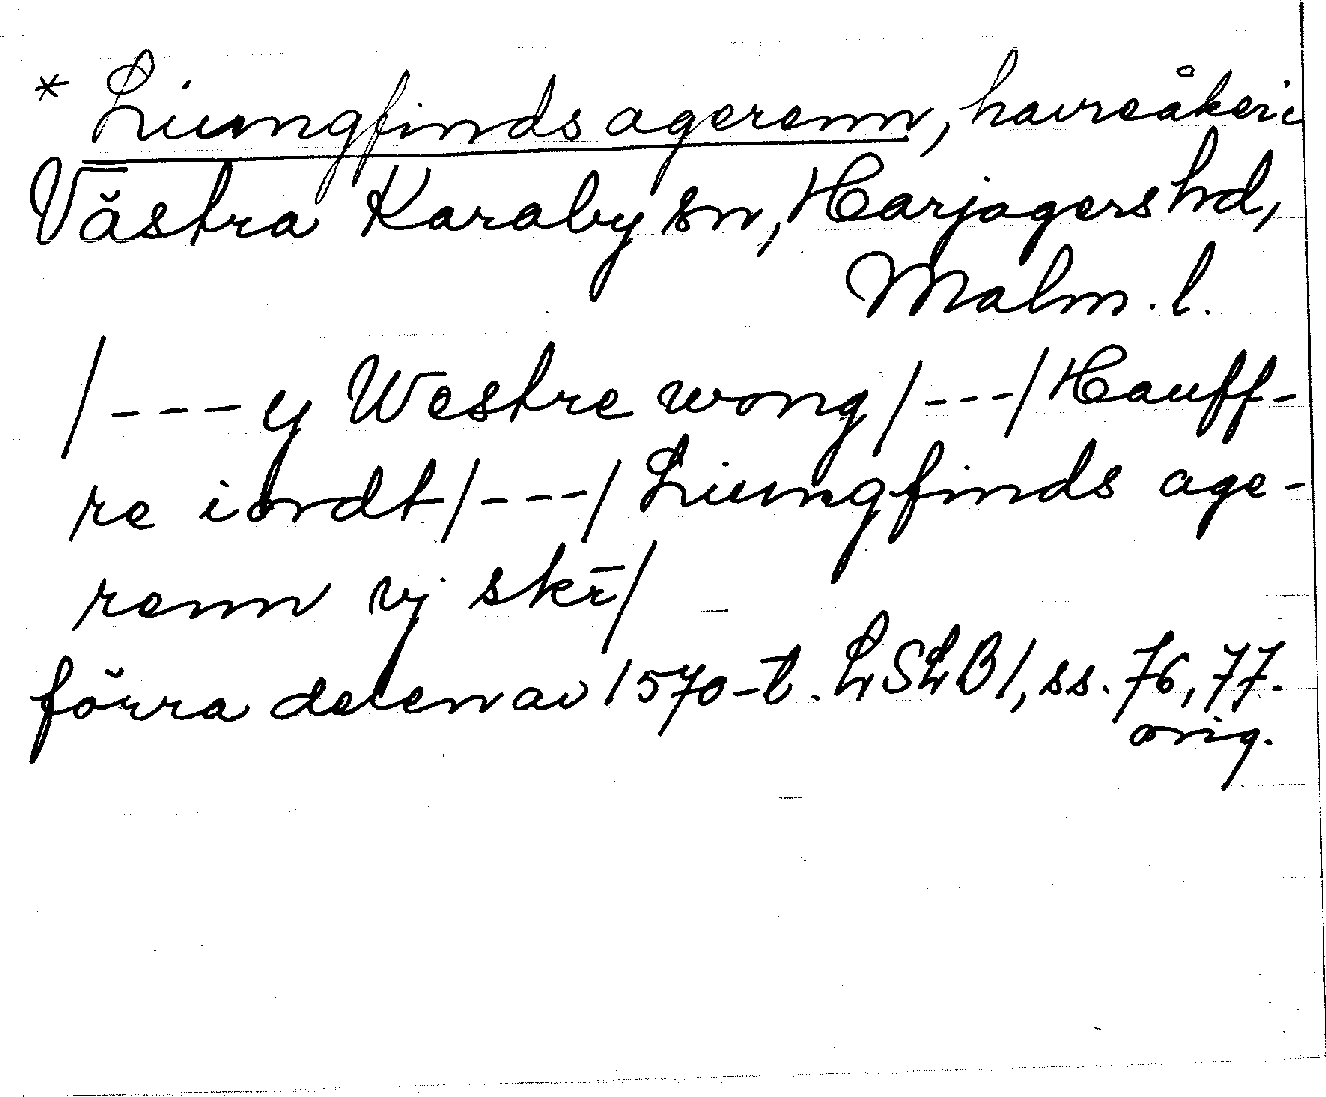 * Liungfinds agerenn, havreåker i
Västra Karaby sn, Harjagers hd,
Malm. l.
/---y Westre wong/---/Hauff-
re iordt/---/Liungfinds age-
renn vj skr̄/
förra delen av 1570-t. LSLB 1, ss. 76, 77.
orig.